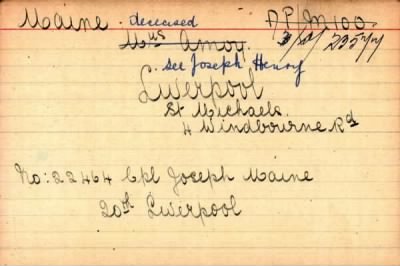 Maine . deceased AP/M100.
Mrs Amoy.
see Joseph Henry
Liverpool
St Michaels.
4 Windbourne Rd
No: 22464 Cpl Joseph Maine
20th Liverpool